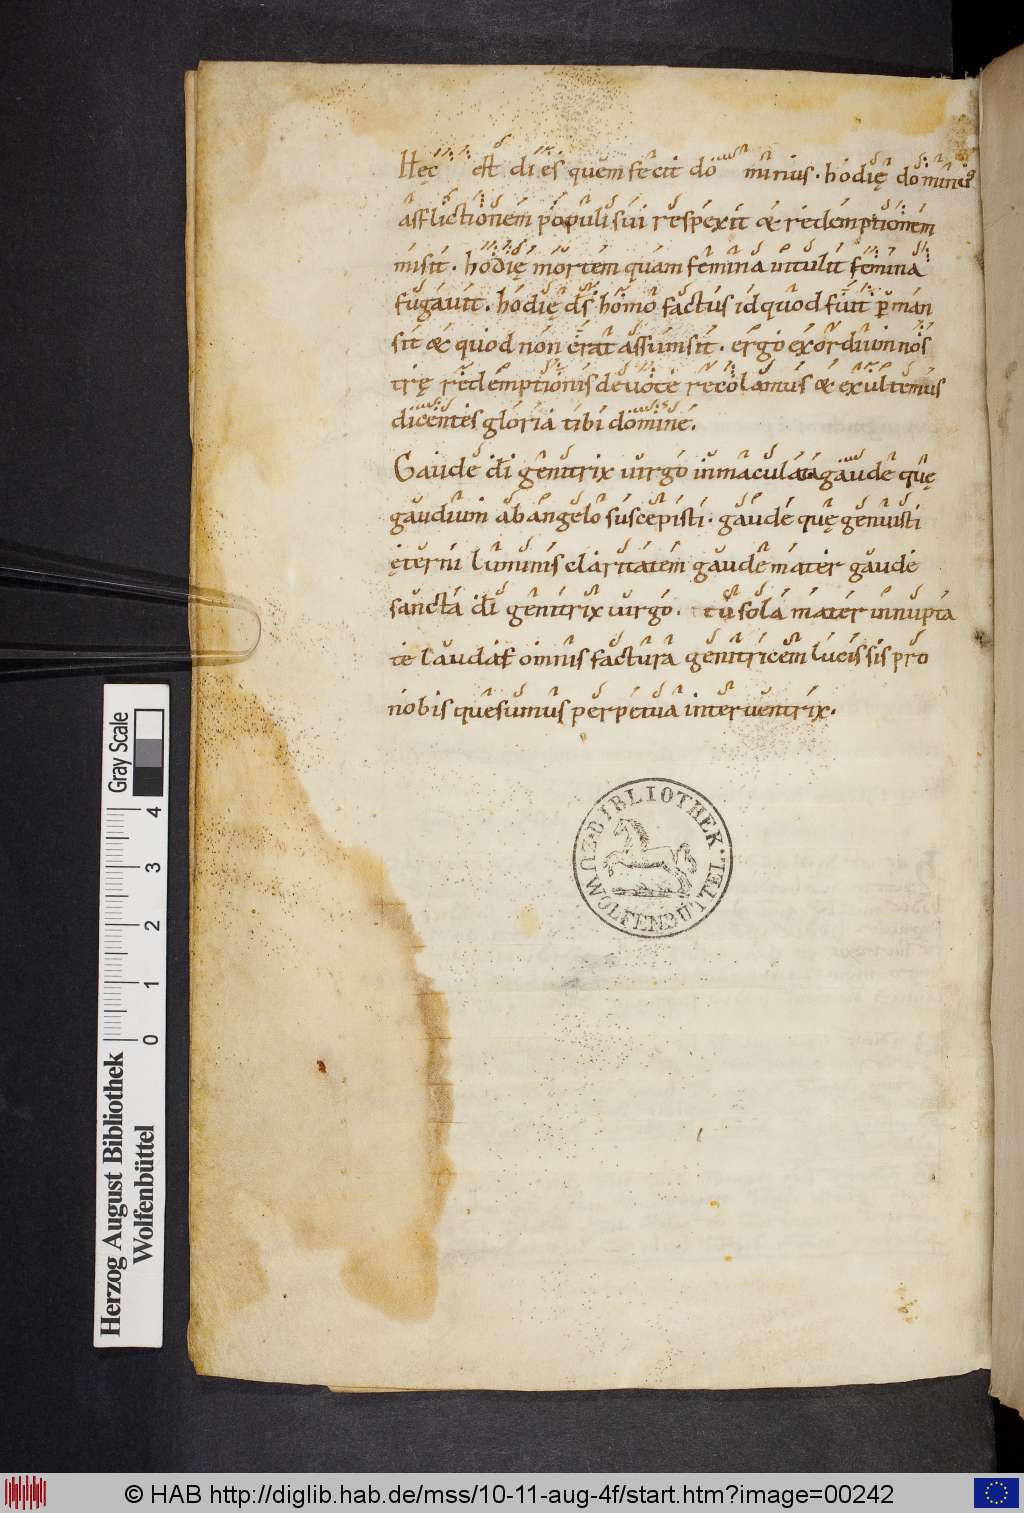 Hęc est dies quem fecit dominus · hodię dominus
afflictionem populi sui respexit & redemptionem
misit · hodię mortem quam femina intulit femina
fugauit · hodię ds̄ homo factus id quod fuit pman
sit & quod non erat assumsit · ergo exordium nos
trę redemptionis deuote recolamus & exultemus
dicentes gloria tibi domine.
Gaude dī genitrix uirgo inmaculata gaude quę
gaudium ab angelo suscepisti · gaude quę genuisti
ęterni luminis claritatem gaude mater gaude
sancta dī genitrix uirgo · tu sola mater innupta
te laudat omnis factura genitricem lucis sis pro
nobis quesumus perpetua interuentrix ·
· BIBLIOTHEK · ZU WOLFENBÜTTEL
Gray Scale
4
3
2
1
0
Herzog August Bibliothek
Wolfenbüttel
© HAB http://diglib.hab.de/mss/10-11-aug-4f/start.htm?image=00242